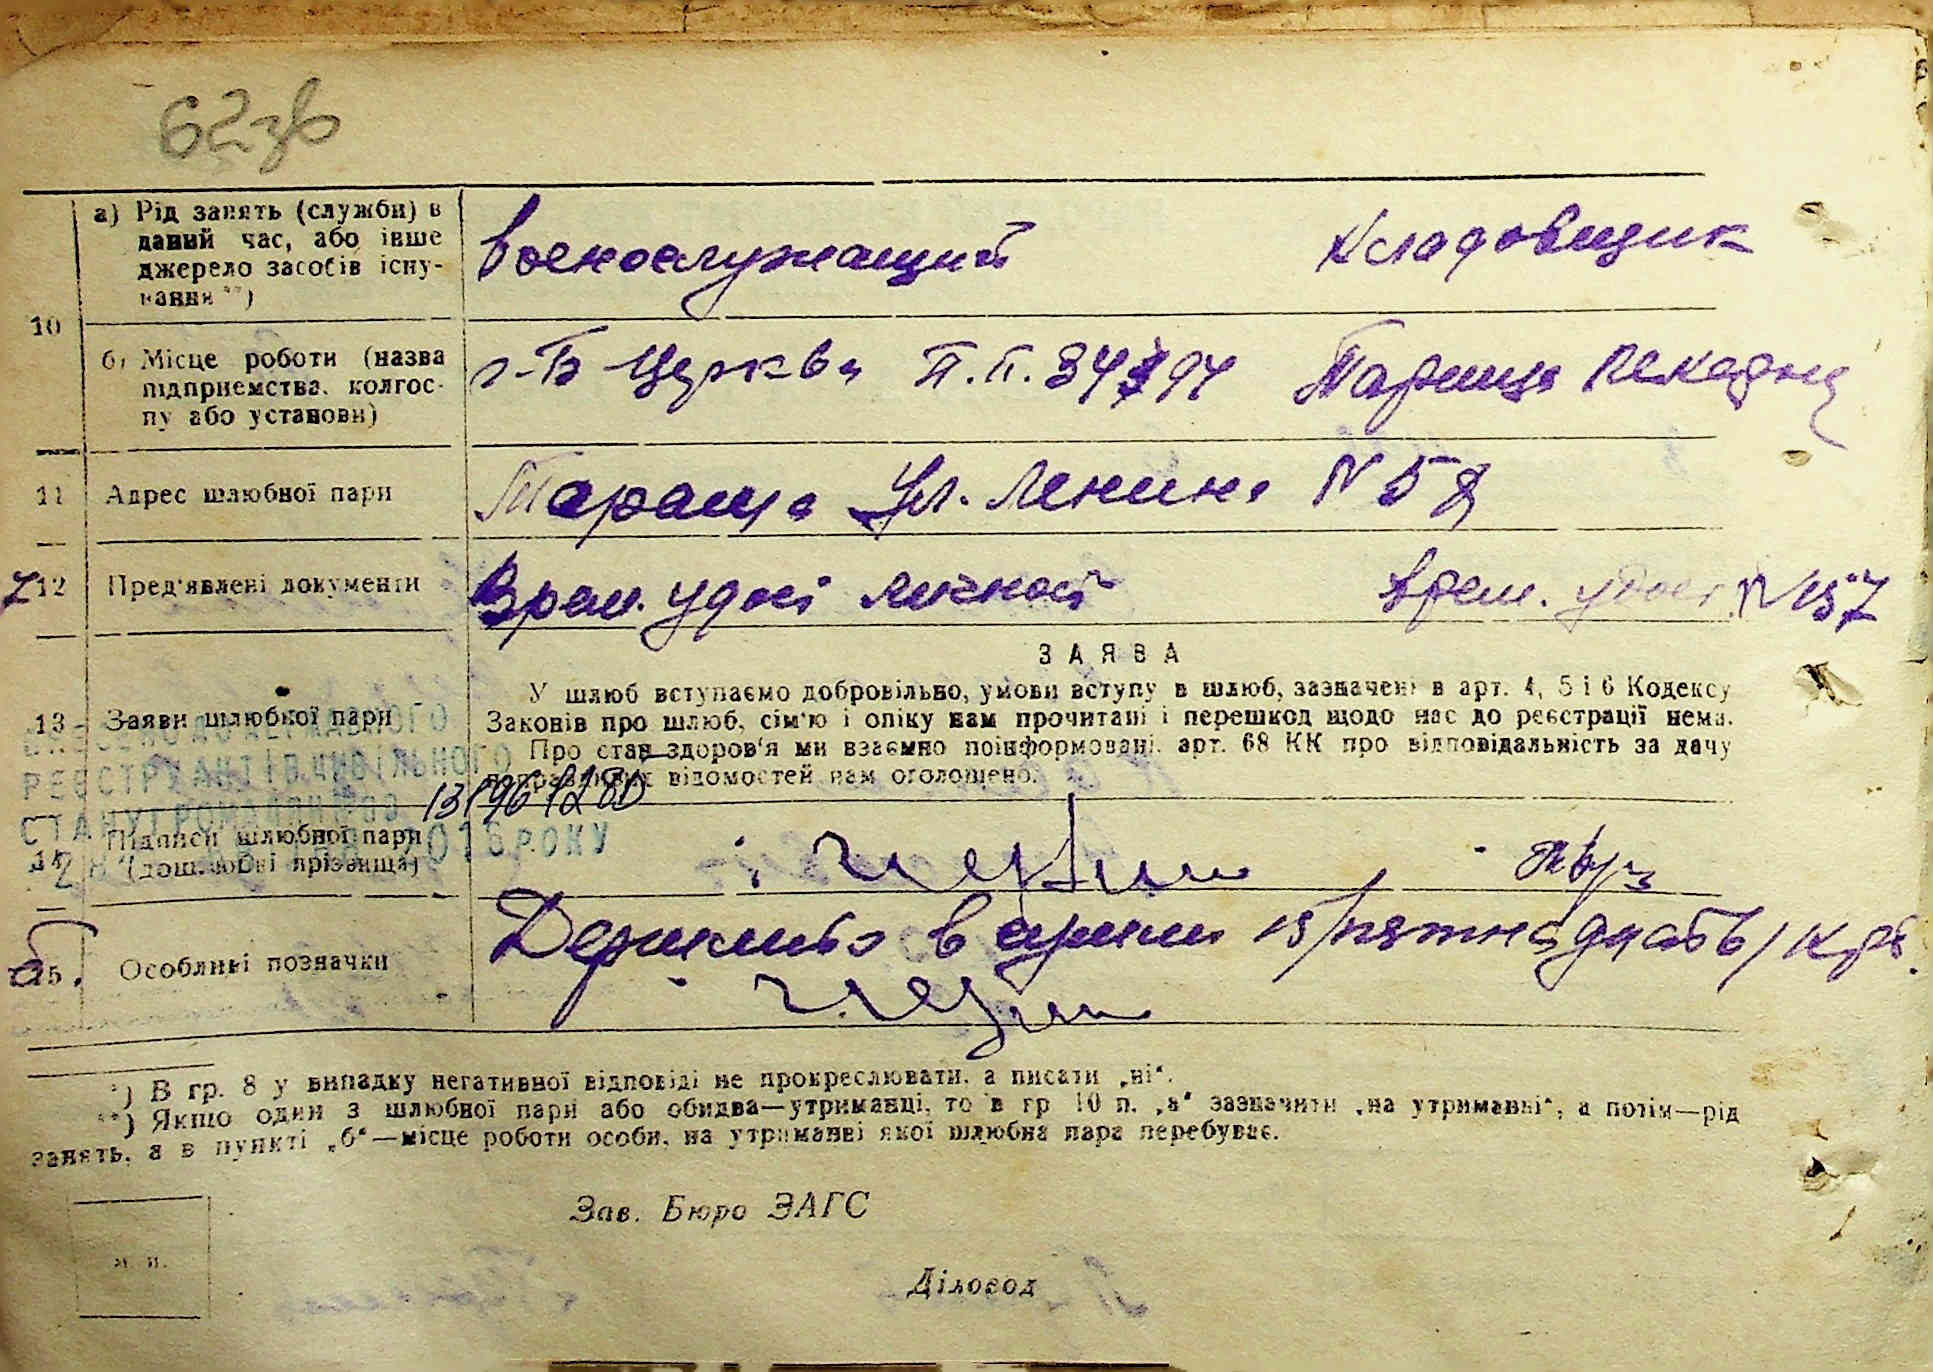 62зв
а) Рід занять (служби) в
даний час, або інше
джерело засобів існу-
вання **)
военослужащий
Кладовщик
10
б) Місце роботи (назва
підприємства, колгос-
пу або установи)
г-Б Церква П.П. 34 94
Тараща
11
Адрес шлюбної пари
Тараща Ул. Ленина N 58
12
Пред'явлені документи
Врем. удос личной
врем. удост. N 157
ЗАЯВА
13
Заяви шлюбної пари
У шлюб вступаємо добровільно, умови вступу в шлюб, зазначені в арт. 4, 5 і 6 Кодексу
Законів про шлюб, сім'ю і опіку нам прочитані і перешкод щодо нас до реєстрації нема.
Про стан здоров'я ми взаємно поінформовані, арт. 68 КК про відповідальність за дачу
неправдивих відомостей нам оголошено.
ДЕРЖАВНОГО
РЕЄСТРУ АКТІВ ЦИВІЛЬНОГО
СТАНУ ГРОМАДЯН
РОКУ
14
Підписи шлюбної пари
(дошлюбні прізвища)
15
Особливі позначки
в сумме 15 /пятнадцать/ крб.
*) В гр. 8 у випадку негативної відповіді не прокреслювати, а писати „ні“.
**) Якщо один з шлюбної пари або обидва—утриманці, то в гр 10 п. „а“ зазначити „на утриманні“, а потім—рід
занять, а в пункті „б“—місце роботи особи, на утриманні якої шлюбна пара перебуває.
Зав. Бюро ЗАГС
м. п.
Діловод